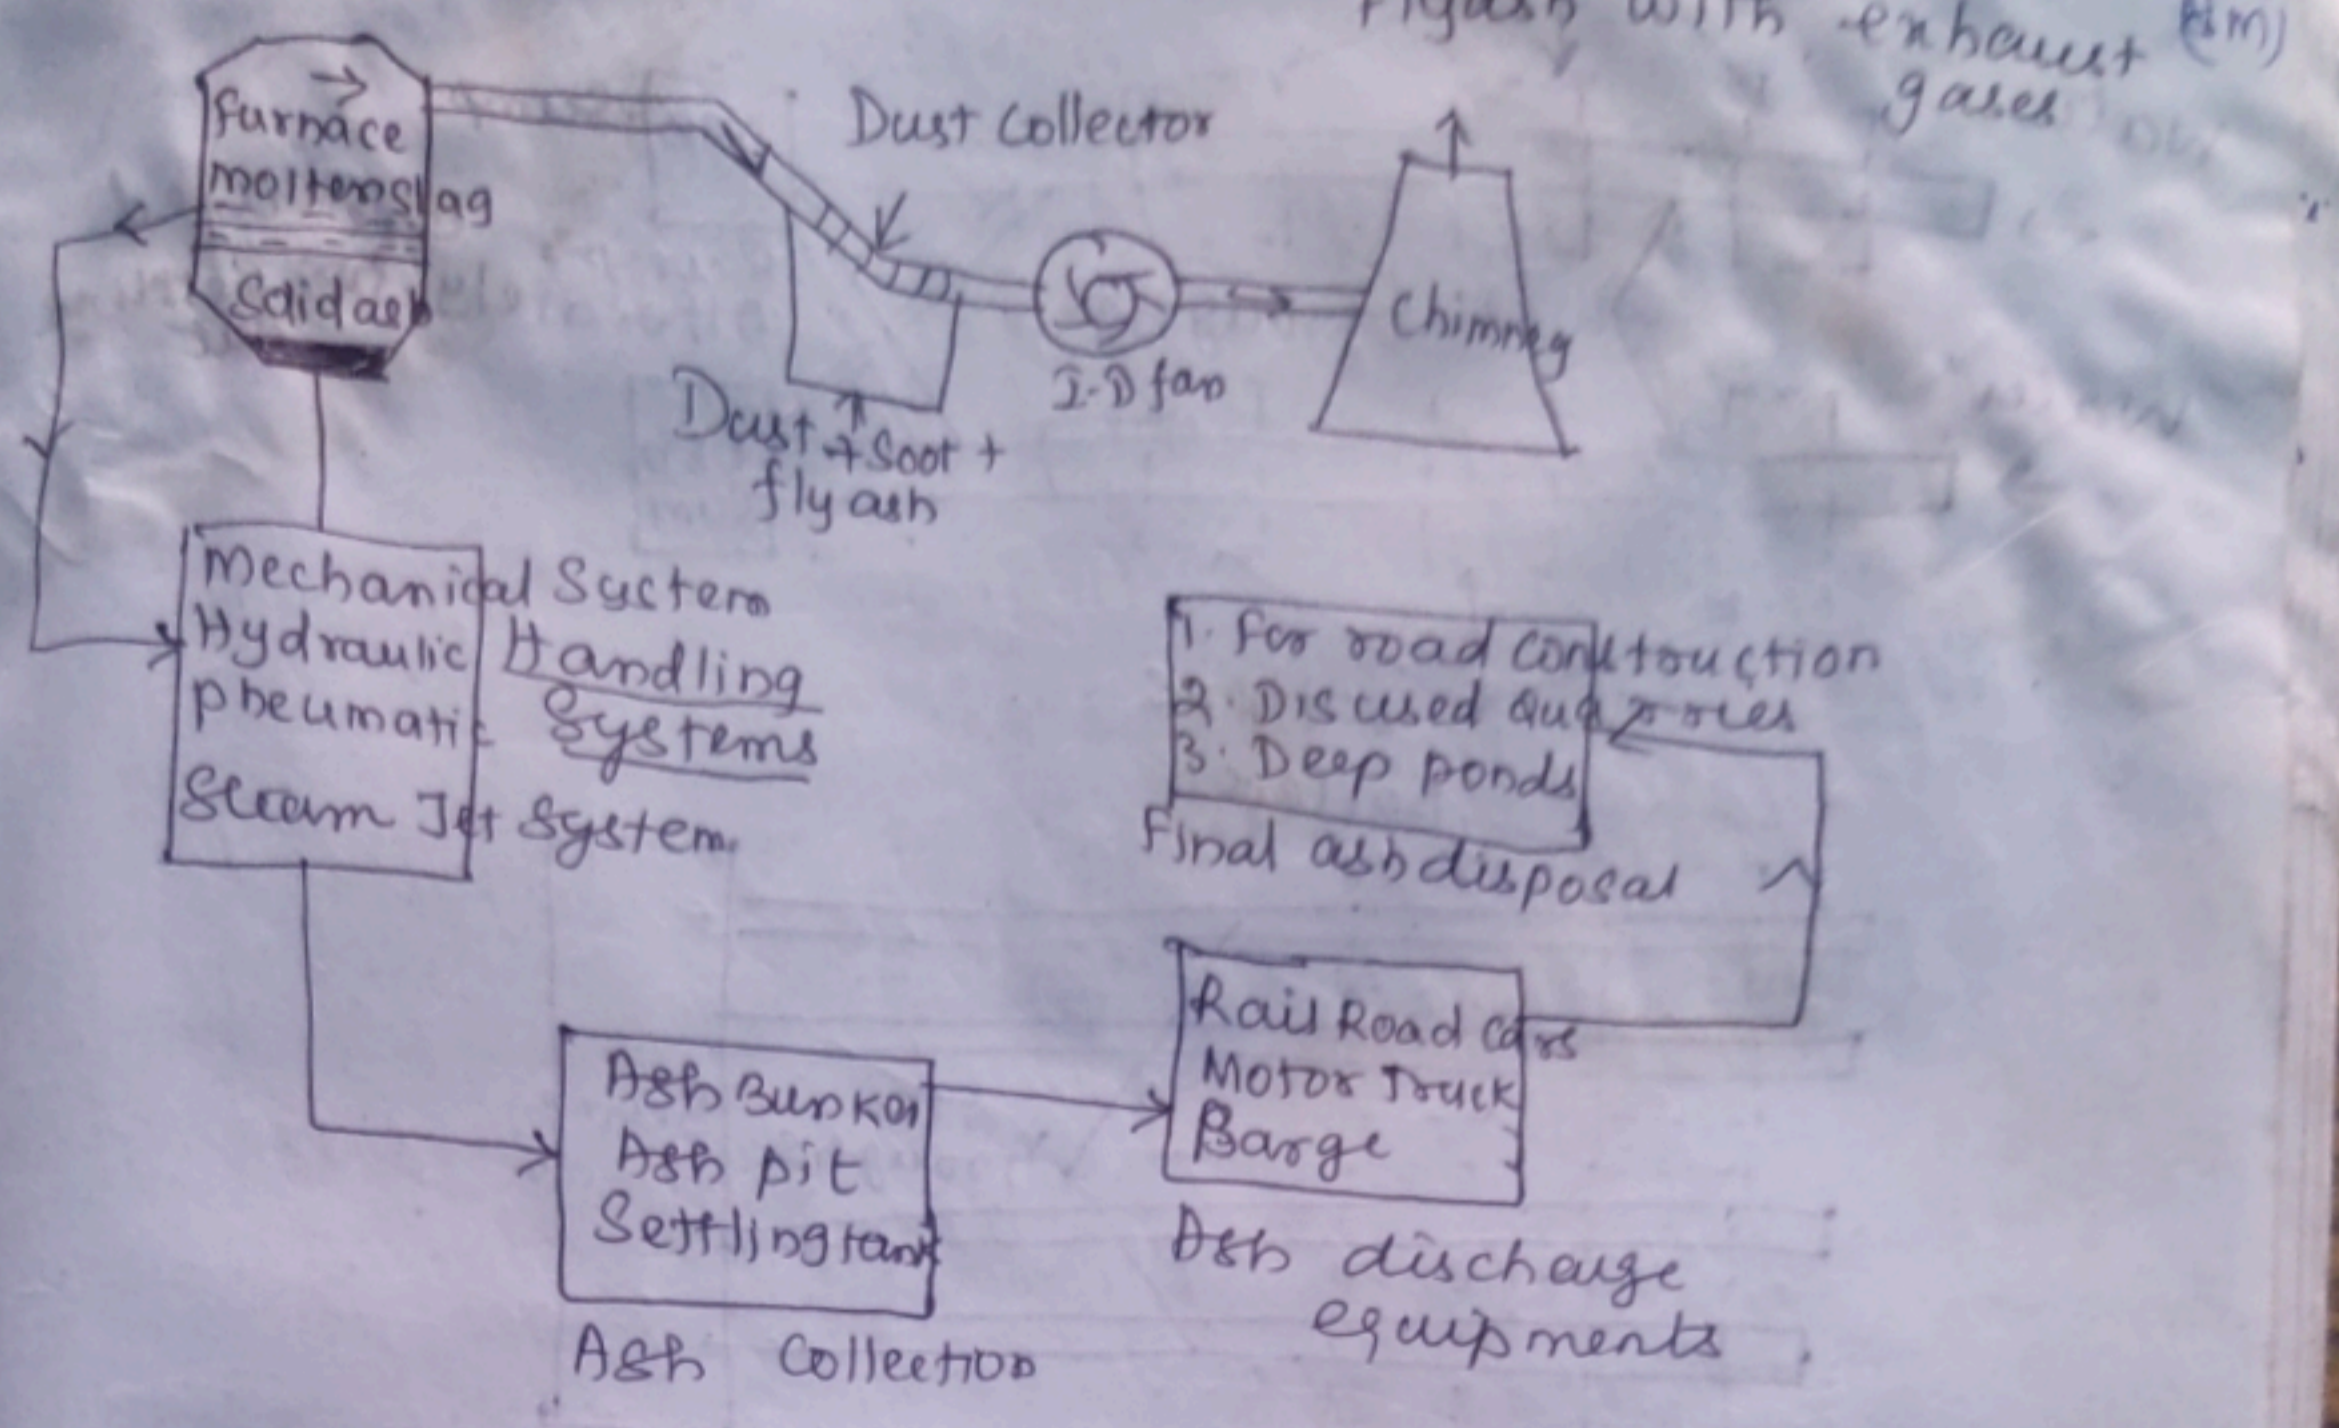 Flyash with exhaust (5m)
gases
furnace
moltenslag
Solidash
Dust Collector
I.D fan
Chimney
Dust + Soot +
fly ash
Mechanical System
Hydraulic Handling
pneumatic Systems
Steam Jet System
1. For road construction
2. Disused Quarries
3. Deep ponds
Final ash disposal
Rail Road cars
Motor Truck
Barge
Ash discharge
equipments
Ash Bunker
Ash pit
Settlingtank
Ash Collection